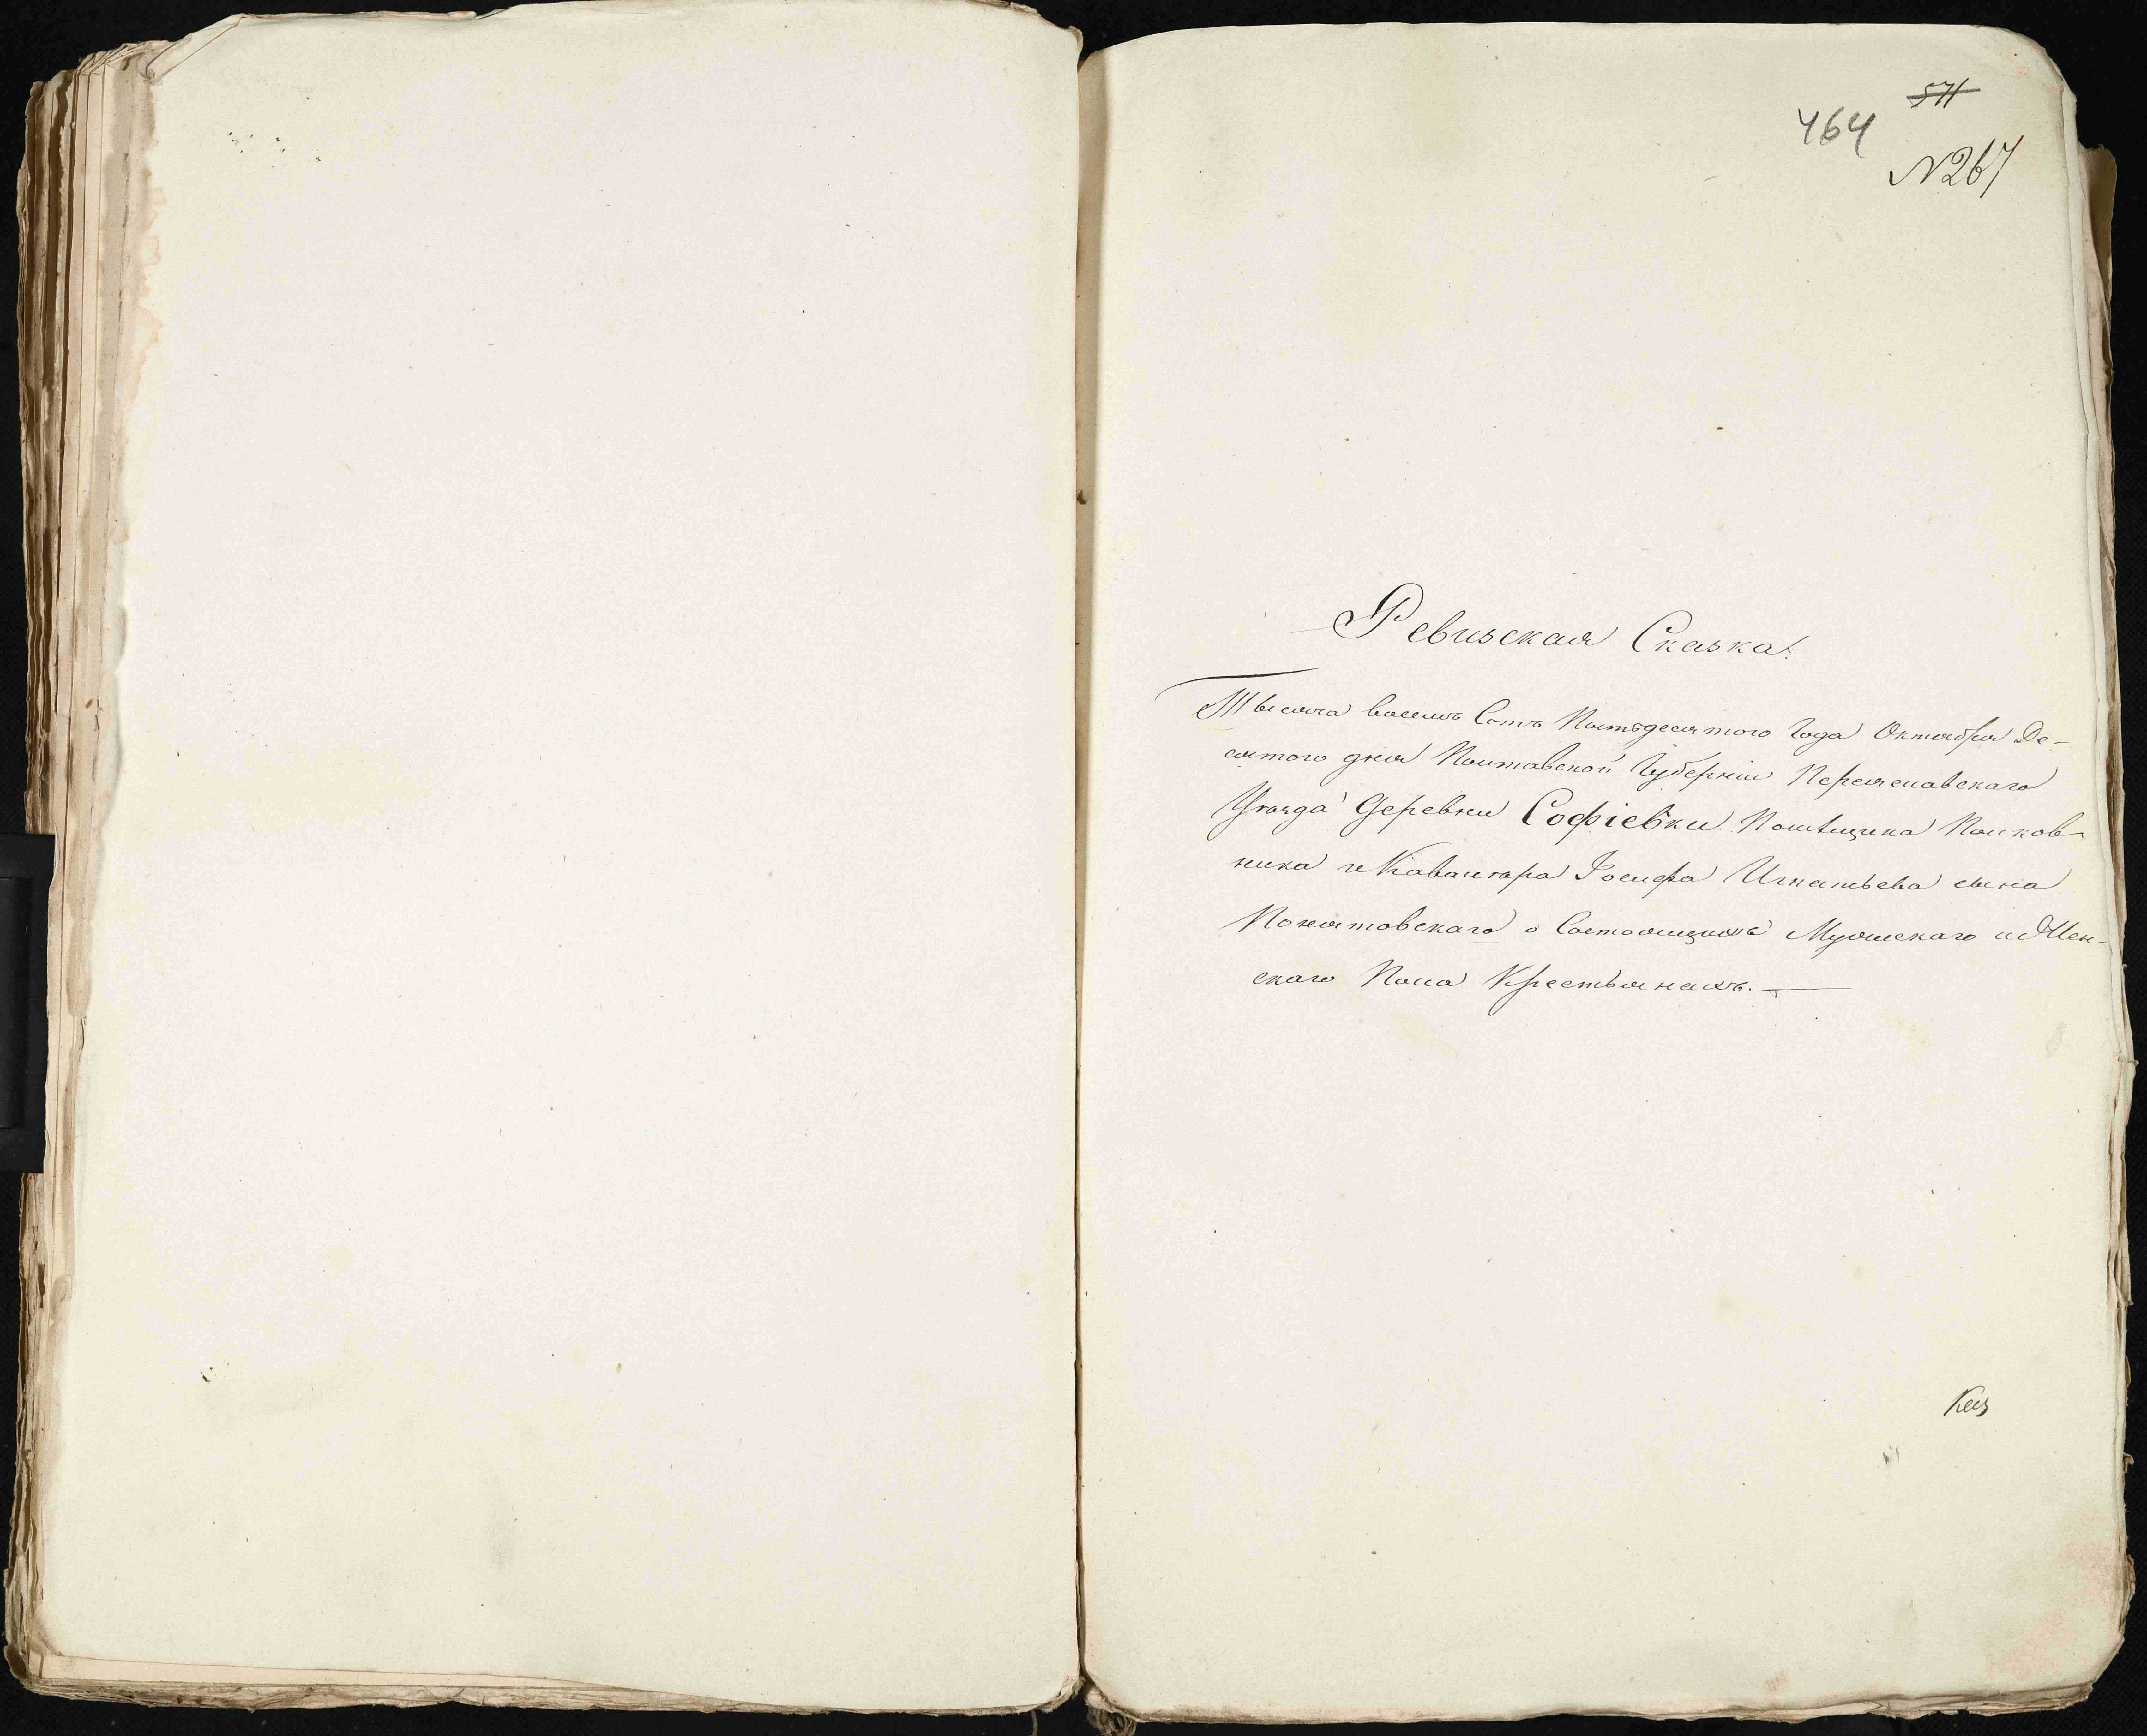 571
464
N267
Ревизская Сказка.
Тысяча восемь Сотъ Пятьдесятого Года Октября Де-
сятого дня Полтавской Губерніи Переяславскаго
Уѣзда Деревни Софіевки Помѣщика Полков
ника и Кавалера Іосифа Игнатьева сына
Понятовскаго о Состоящихъ Мужескаго и Жен-
скаго Пола Крестьянахъ. —